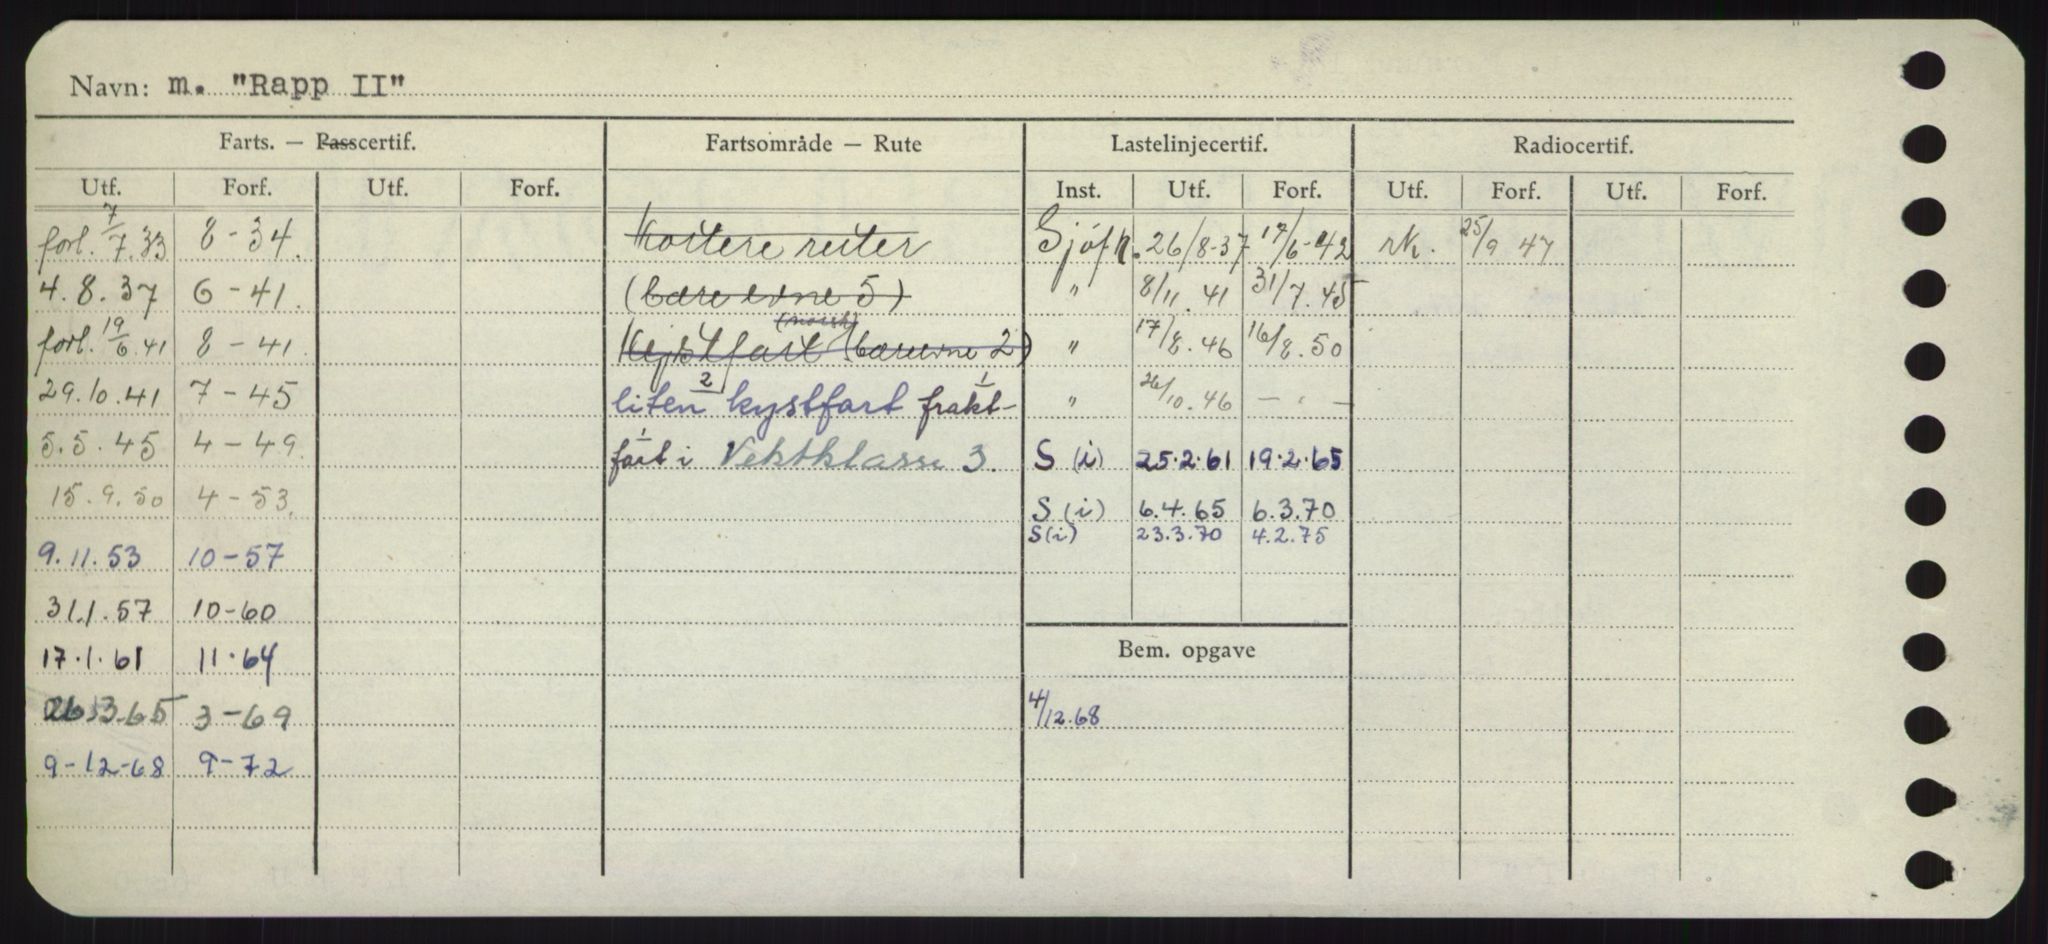 Navn: m. "Rapp II"
Farts. — Passcertif. Fartsområde — Rute Lastelinjecertif. Radiocertif.
Utf. Forf. Utf. Forf. Inst. Utf. Forf. Utf. Forf. Utf. Forf.
forl. 7/7.33 8-34. Kortere ruter Sjöfk. 26/8-37 17/6-42 rk. 25/9 47
4.8.37 6-41. (bære evne 5) " 8/11.41 31/7.45
(norsk)
forl. 19/6.41 8-41. Kystfart (bæreevne 2) " 17/8.46 16/8.50
29.10.41 7-45 liten 2 kystfart frakt- 1 " 26/10.46 — " —
5.5.45 4-49. fart i 1 Vektklasse 3. S (i) 25.2.61 19.2.65
15.9.50 4-53. S (i) 6.4.65 6.3.70
S (i) 23.3.70 4.2.75
9.11.53 10-57
31.1.57 10-60
17.1.61 11.64 Bem. opgave
26.3.65 3-69 4/12.68
9-12-68 9-72